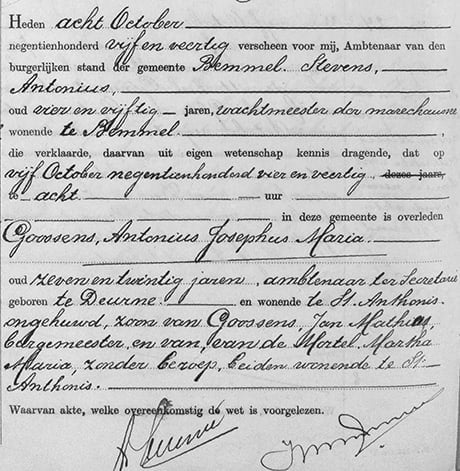 Heden acht October
negentienhonderd vijf en veertig verscheen voor mij, Ambtenaar van den
burgerlijken stand der gemeente Bemmel Stevens,
Antonius,
oud vier en vijftig jaren, wachtmeester der marechaussee
wonende te Bemmel
die verklaarde, daarvan uit eigen wetenschap kennis dragende, dat op
vijf October negentienhonderd vier en veertig dezes jaars,
te acht uur
in deze gemeente is overleden
Goossens, Antonius Josephus Maria.
oud zeven en twintig jaren, ambtenaar ter Secretarie
geboren te Deurne en wonende te St. Anthonis.
ongehuwd, zoon van Goossens, Jan Mathijs,
burgemeester en van, van de Mortel, Martha
Maria, zonder beroep, beiden wonende te St.
Anthonis.
Waarvan akte, welke overeenkomstig de wet is voorgelezen.